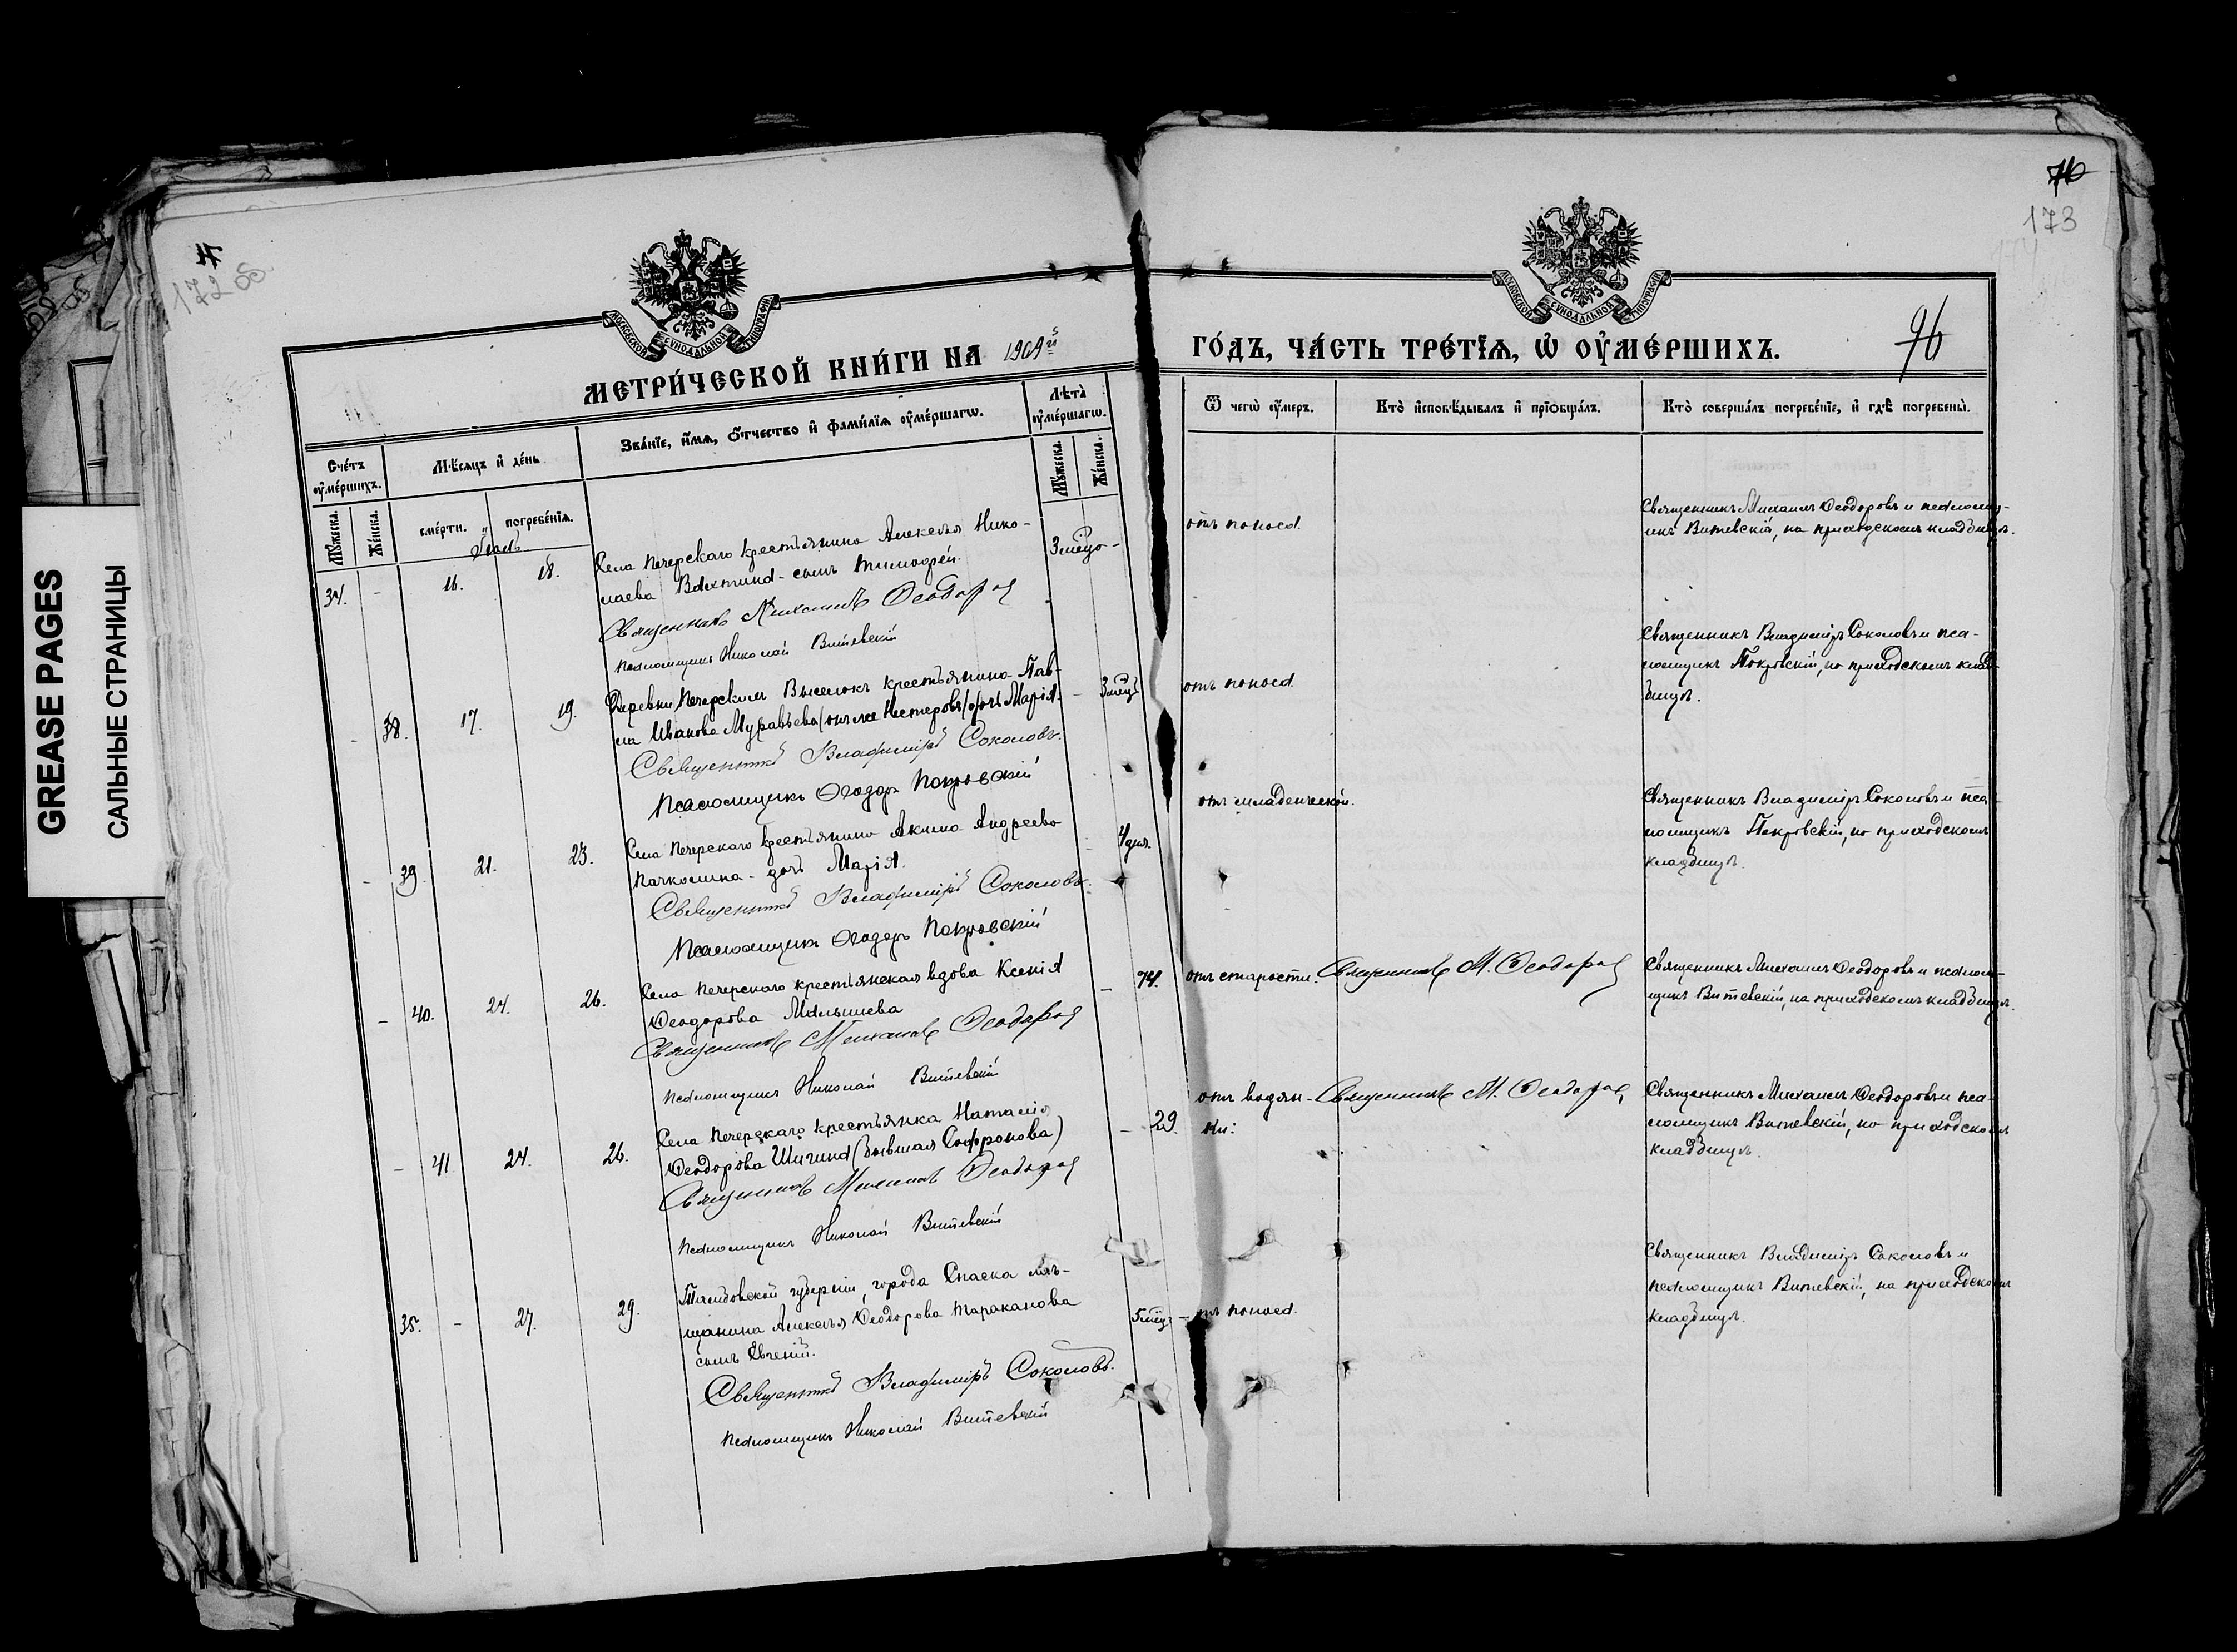 GREASE PAGES
САЛЬНЫЕ СТРАНИЦЫ
172 об
76
173
96
МОСКОВСКОЙ СѴНОДАЛЬНОЙ ТИПОГРАФІИ
МОСКОВСКОЙ СѴНОДАЛЬНОЙ ТИПОГРАФІИ
МЕТРИ́ЧЕСКОЙ КНИ́ГИ НА 1909й
ГО́ДЪ, ЧА́СТЬ ТРЕ́ТІѦ, Ѡ҆ ОУ҆МЕ́РШИХЪ.
Сче́тъ оу҆ме́ршихъ.
Мѣ́сяцъ и҆ де́нь
Зва́нїе, и҆́мѧ, ѻ҆́тчество и҆ фами́лїѧ оу҆ме́ршагѡ.
Лѣ́та оу҆ме́ршагѡ.
Ѿ чегѡ̀ оу҆́меръ.
Кто̀ и҆сповѣ́дывалъ и҆ прїѡбща́лъ.
Кто̀ соверша́лъ погребе́нїе, и҆ гдѣ̀ погребены̀.
Мꙋ́жеска.
Же́нска.
сме́рти.
погребе́нїѧ.
Мꙋ́жеска.
Же́нска.
34. - 16. 18.
Села Печерскаго крестьянина Алексѣя Нико-
лаева Вахтина - сынъ Тимофей.
Священникъ Михаилъ Ѳеодоровъ
Псаломщикъ Николай Витевскій
отъ поноса.
Священникъ Михаилъ Ѳеодоровъ и псаломщ-
икъ Витевскій, на приходскомъ кладбищѣ.
- 38. 17. 19.
Деревни Печерскихъ Выселокъ крестьянина Пав-
ла Иванова Муравьева (онъ же Нестеровъ) дочь Марія.
Священникъ Владиміръ Соколовъ.
Псаломщикъ Ѳеодоръ Покровскій
отъ поноса.
Священникъ Владиміръ Соколовъ и пса-
ломщикъ Покровскій, на приходскомъ клад-
бищѣ.
- 39. 21. 23.
Села Печерскаго крестьянина Акима Андреева
Пачколина - дочь Марія.
Священникъ Владиміръ Соколовъ.
Псаломщикъ Ѳеодоръ Покровскій
4 дня.
отъ младенческой.
Священникъ Владиміръ Соколовъ и пса-
ломщикъ Покровскій, на приходскомъ
кладбищѣ.
- 40. 24. 26.
Села Печерскаго крестьянская вдова Ксенія
Ѳеодорова Малышева
Священникъ Михаилъ Ѳеодоровъ
Псаломщикъ Николай Витевскій
- 74.
отъ старости.
Священникъ М. Ѳеодоровъ
Священникъ Михаилъ Ѳеодоровъ и псалом-
щикъ Витевскій, на приходскомъ кладбищѣ.
- 41. 24. 26.
Села Печерскаго крестьянка Наталія
Ѳеодорова Шигина (бывшая Софронова)
Священникъ Михаилъ Ѳеодоровъ
Псаломщикъ Николай Витевскій
- 29.
отъ водян-
ки:
Священникъ М. Ѳеодоровъ
Священникъ Михаилъ Ѳеодоровъ и пса-
ломщикъ Витевскій, на приходскомъ
кладбищѣ.
35. - 27. 29.
Тамбовской губерніи, города Спаска мѣ-
щанина Алексѣя Ѳеодорова Тараканова
сынъ Евгеній.
Священникъ Владиміръ Соколовъ.
Псаломщикъ Николай Витевскій
отъ поноса.
Священникъ Владиміръ Соколовъ и
псаломщикъ Витевскій, на приходскомъ
кладбищѣ.